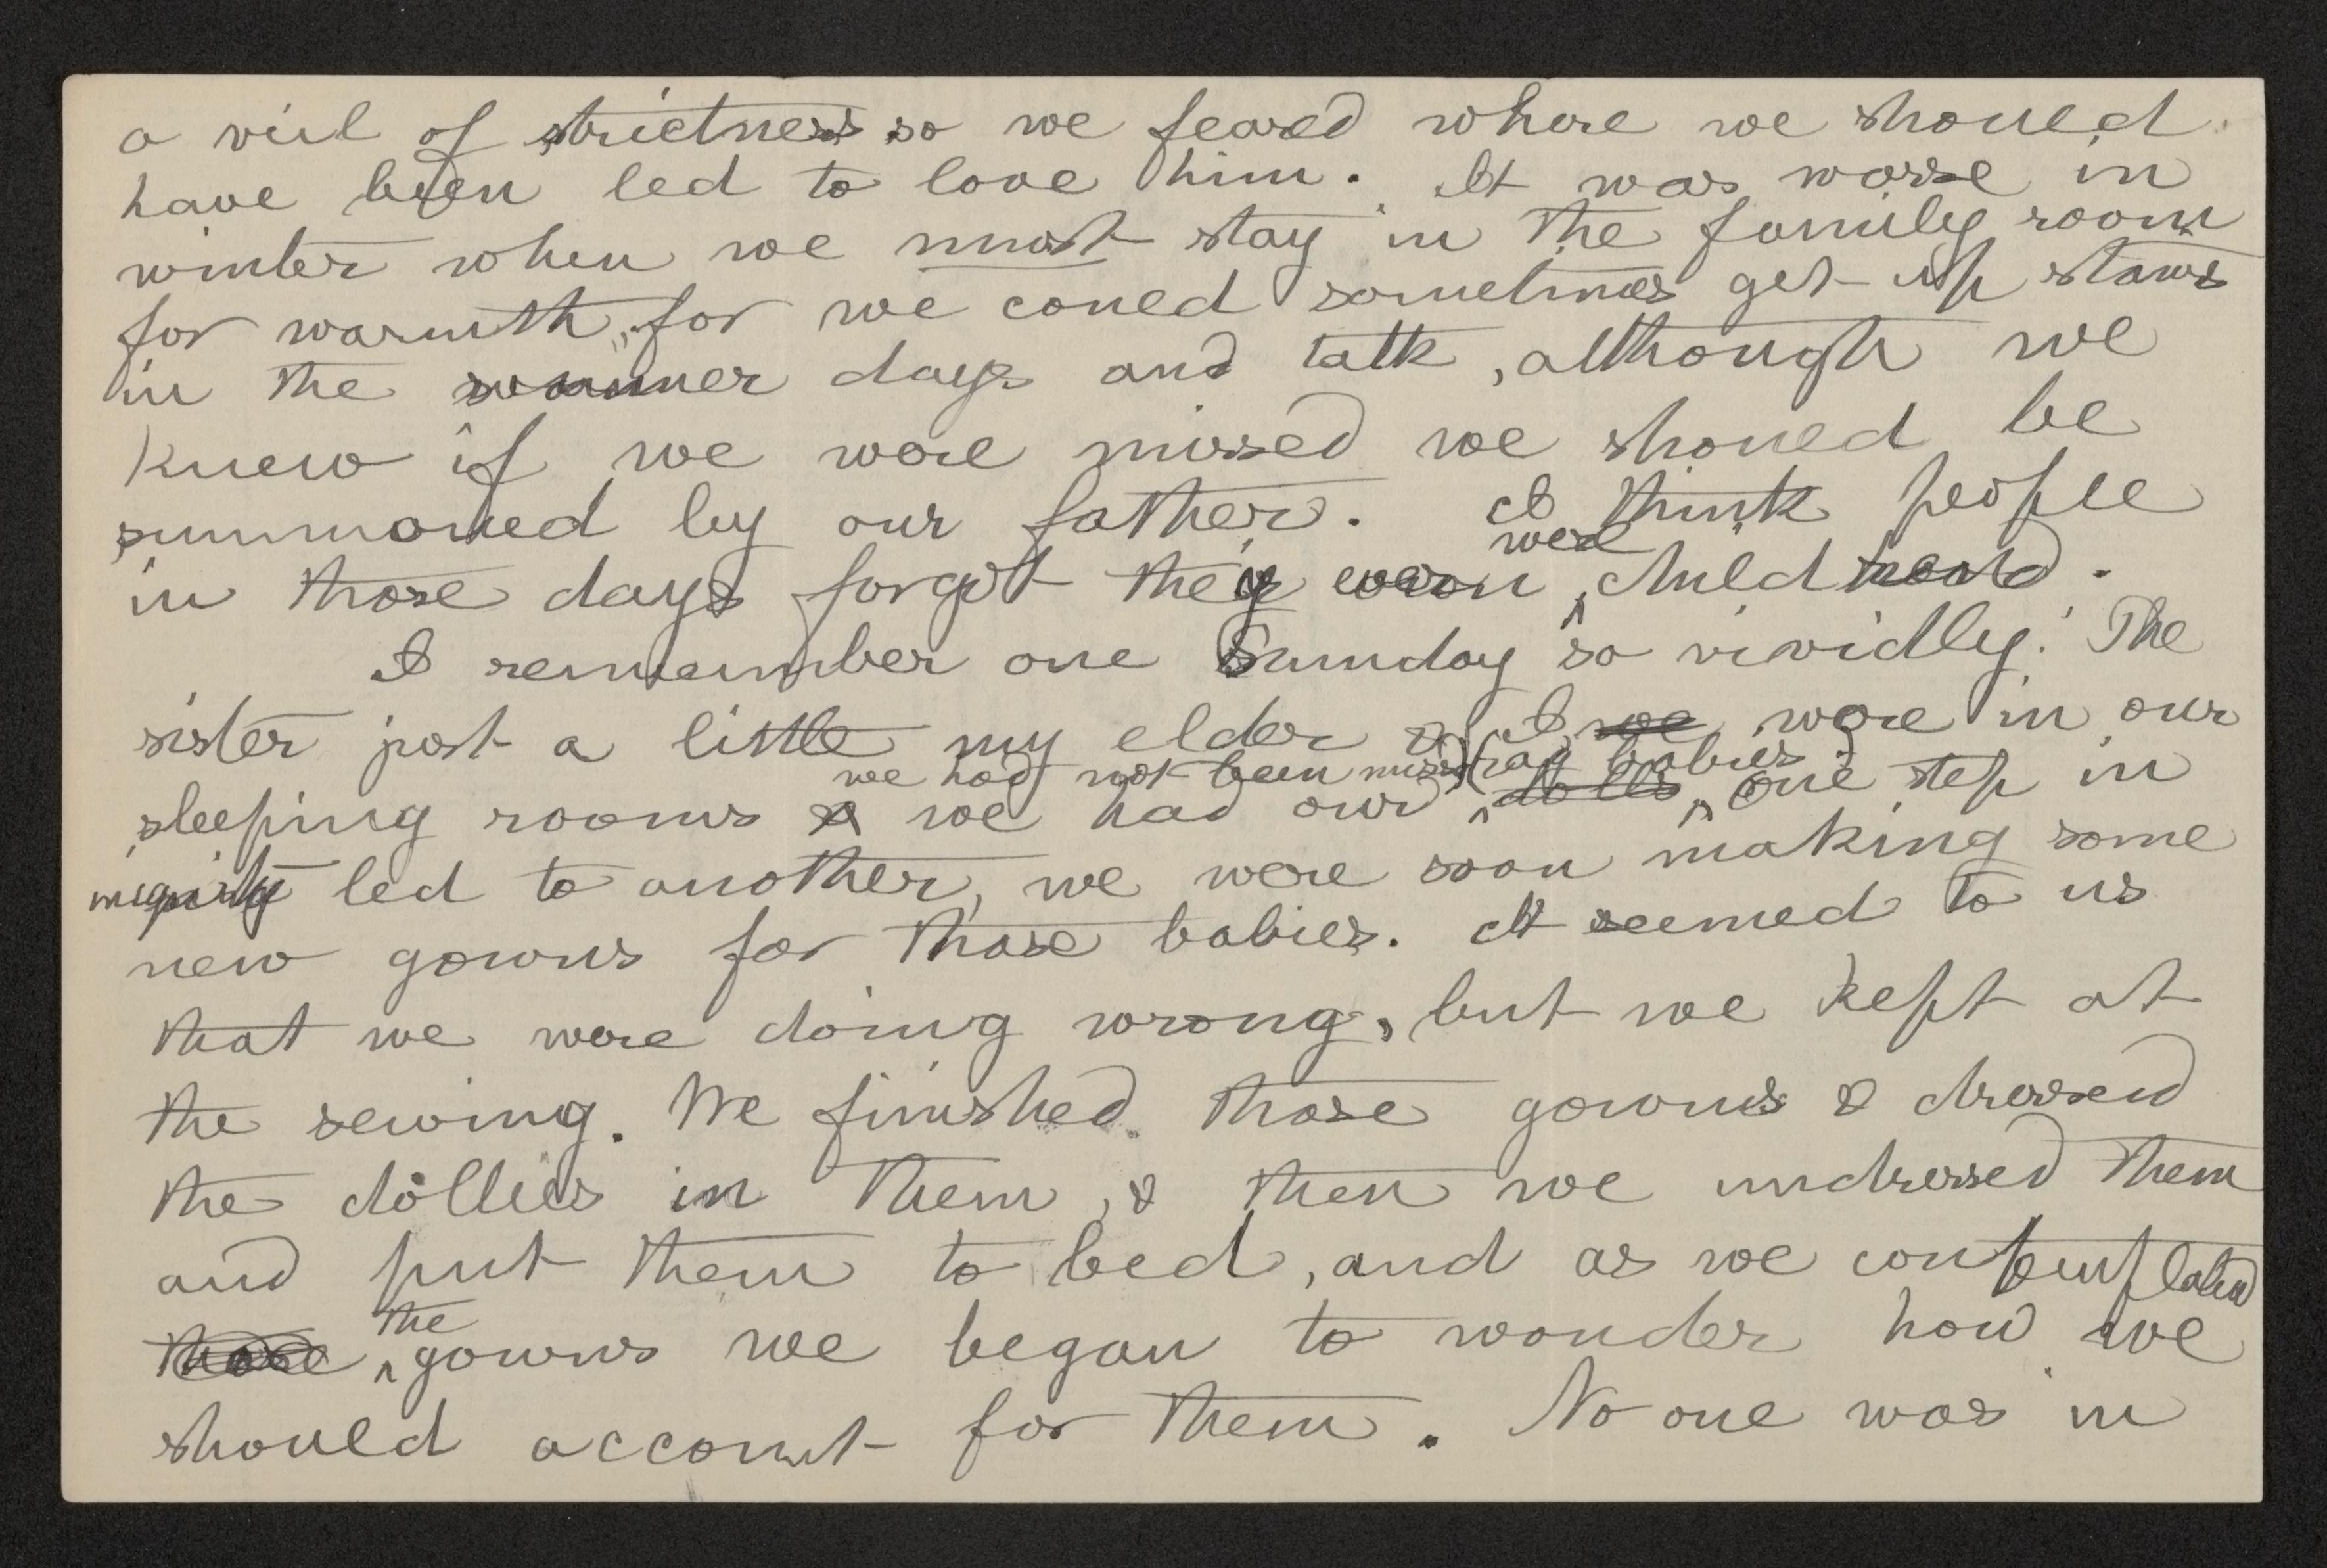 a viel of strictness so we feared where we should
have been led to love him. It was worse in
winter when we must stay in the family room
for warmth, for we could sometimes get up stairs
in the summer days and talk, although we
knew if we were missed we should be
summoned by our father. I think people
were
in those days forgot they ever child
I remember one Sunday so vividly! The
sister just a little my elder & I we were in our
we had not been missed (rag babies)
sleeping rooms & we had our dolls, one step in
iniquity led to another, we were soon making some
new gowns for those babies. It seemed to us
that we were doing wrong, but we kept at
the sewing. We finished those gowns & dressed
the dollies in them, & then we undressed them
and put them to bed, and as we contemplated
the
those gowns we began to wonder how we
should account for them. No one was in